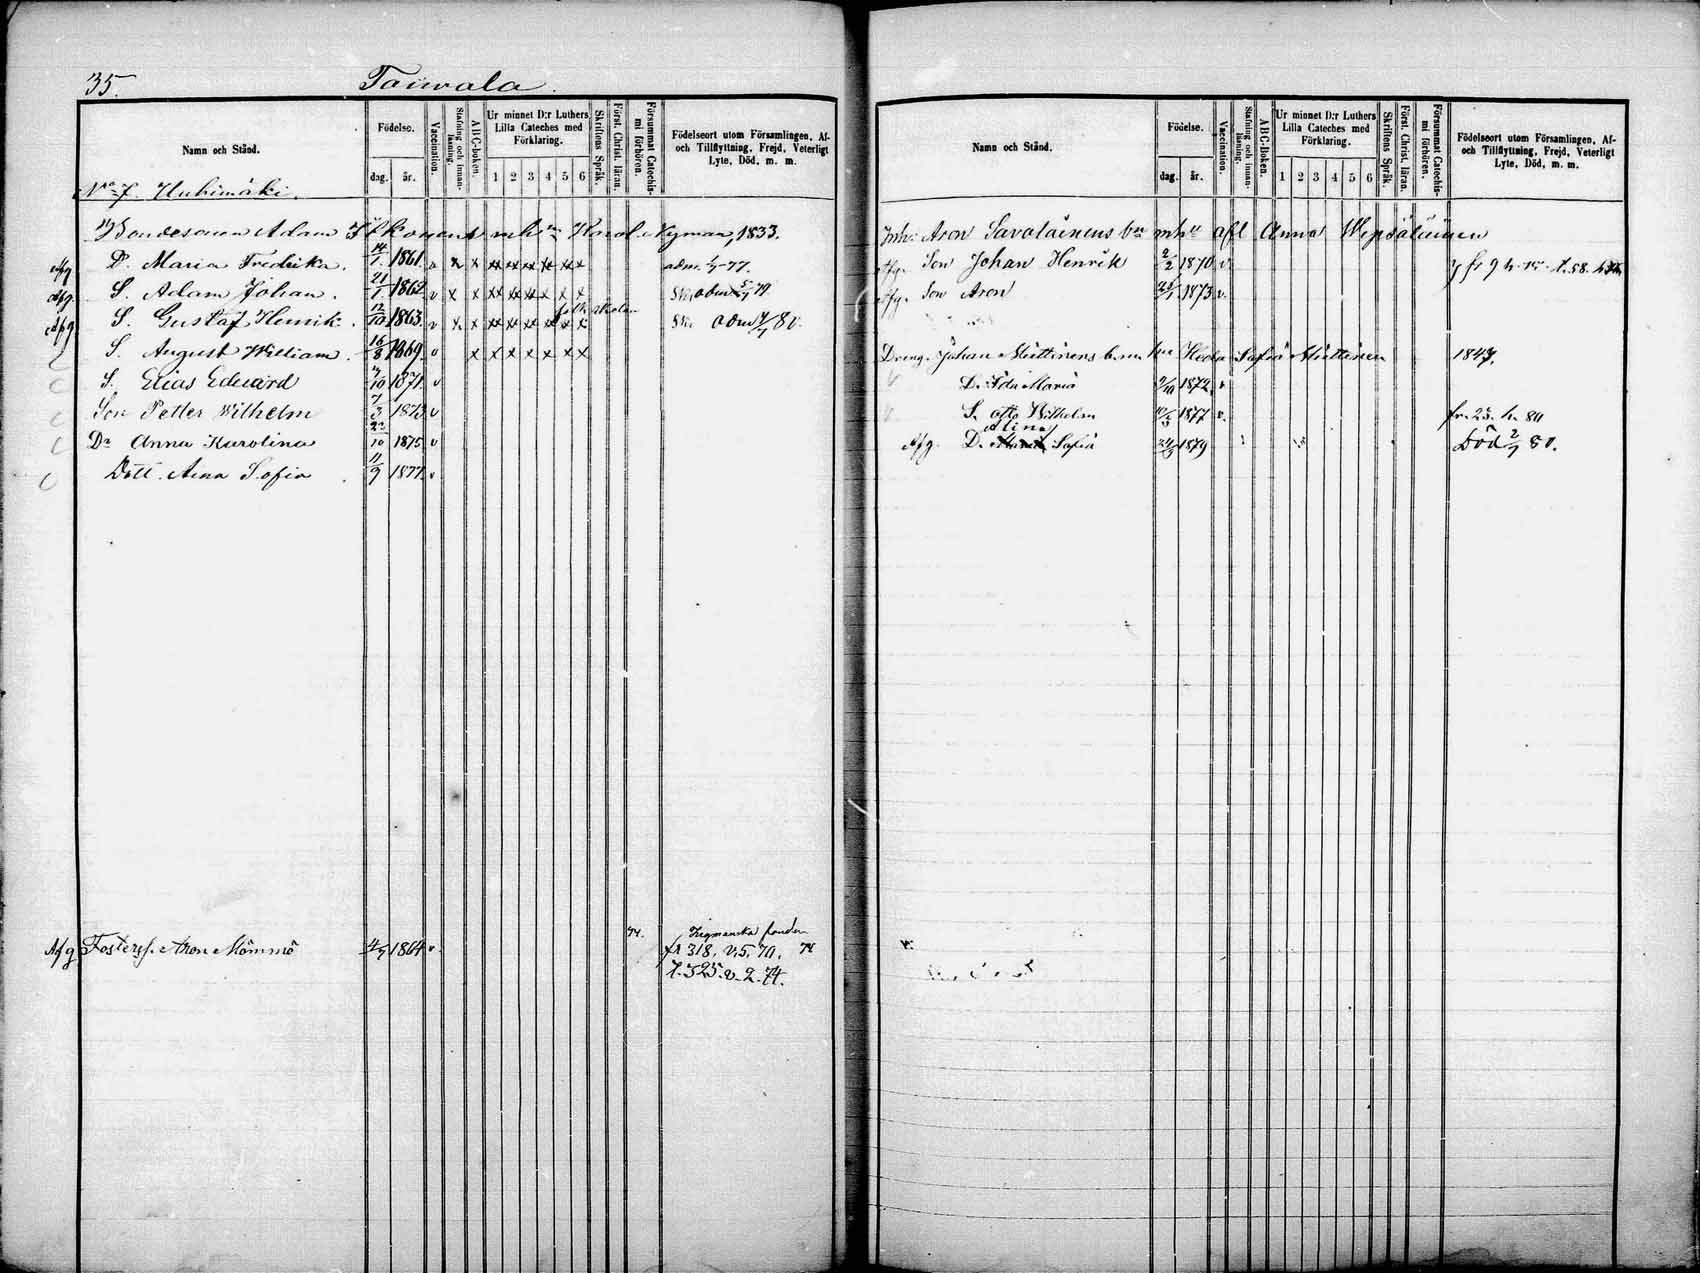 35. Toiwala.
Namn och Stånd.
Födelse.
dag. år.
Vaccination.
Stafning och innanläsning.
ABC-boken.
Ur minnet D:r Luthers Lilla Cateches med Förklaring.
1 2 3 4 5 6
Skriftens Språk.
Först. Christ. läran.
Försummat Catechismi förhören.
Födelseort utom Församlingen, Af- och Tillflyttning, Frejd, Veterligt Lyte, Död, m. m.
No 7. Huhimäki.
Bondesonen Adam mh Karol. Nyman, 1833.
Afg D. Maria Fredrika. 14/1 1861. v x x xx xx xx xx x x adm. 77.
Afg. S. Adam Johan. 21/1 1862. v x x xx xx xx x x x adm 79
Afg. S. Gustaf Henrik. 12/10 1863. v x x xx xx xx xx x x folkskolan adm 80.
S. August William. 16/8 1869. v x x x x x x x
S. Elias Edward 1871. v
Son Petter Wilhelm 7/3 1873 v
Dr Anna Karolina 23/10 1875 v
Dott. Aina Sofia 11/9 1877. v
74.
Afg Fosters. Aron Mömmö 4/5 1864 v. fr 318. v. 5. 70. 74
t. 325. v. 2. 74.
Namn och Stånd.
Födelse.
dag. år.
Vaccination.
Stafning och innanläsning.
ABC-Boken.
Ur minnet D:r Luthers Lilla Cateches med Förklaring.
1 2 3 4 5 6
Skriftens Språk.
Först. Christ. läran.
Försummat Catechismi förhören.
Födelseort utom Församlingen, Af- och Tillflyttning, Frejd, Veterligt Lyte, Död, m. m.
Inh. Aron Savolainens bn mh afl Anna Wepsäläinen
Afg. Son Johan Henrik 2/2 1870 v
Afg. Son Aron 1873 v.
Dreng. Johan Muttinens b.m. hu Heda Sofia Muttinen 1847.
D. Ida Maria 9/10 1872. v
S. Otto Wilhelm 1877 v. fr. 25. h. 80
Alina
Afg. D. Sofia 1879 Död 2/7 80.